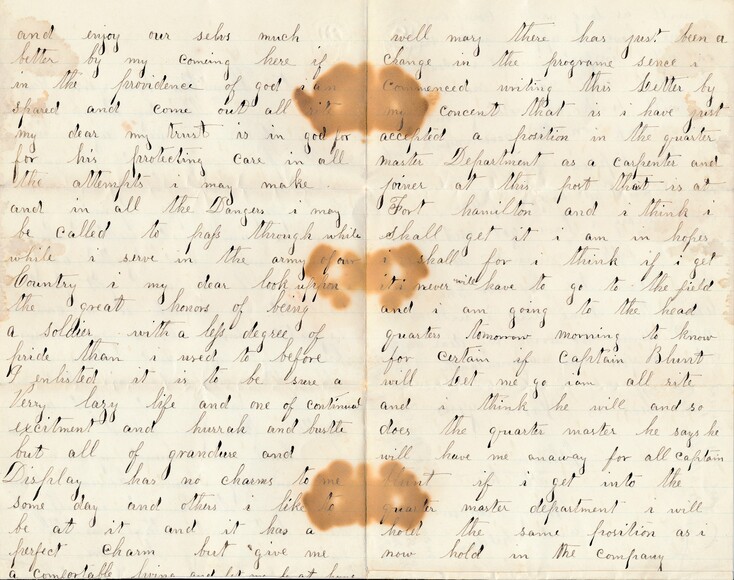 and enjoy our selvs much
better by my coming here if
in the providence of god i am
spared and come out all rite
my dear my trust is in god for
for his protecting care in all
the attempts i may make
and in all the Dangers i may
be called to pass through while
while i serve in the army of our
Country i my dear look uppon
the great honors of being
a soldier with a less degree of
pride than i used to before
I enlisted it is to be sure a
Verry lazy life and one of continual
excitment and hurrah and bustle
but all of grandure and
Display has no charms to me
some day and others i like to
be at it and it has a
perfect charm but give me
a comfortable living and let me be at home
well mary there has just been a
change in the programe sence i
commenced writing this letter by
my concent that is i have just
accepted a position in the quarter
master Department as a carpenter and
joiner at this post that is at
Fort hamilton and i think i
shall get it i am in hopes
i shall for i think if i get
it i never will have to go to the field
and i am going to the head
quarters tomorrow morning to know
for certain if Captain Blunt
will let me go i am all rite
and i think he will and so
does the quarter master he says he
will have me anaway for all captain
Blunt if i get into the
quarter master department i will
hold the same position as i
now hold in the company